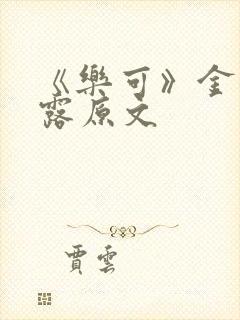 《樂可》金
露原文
賈雲